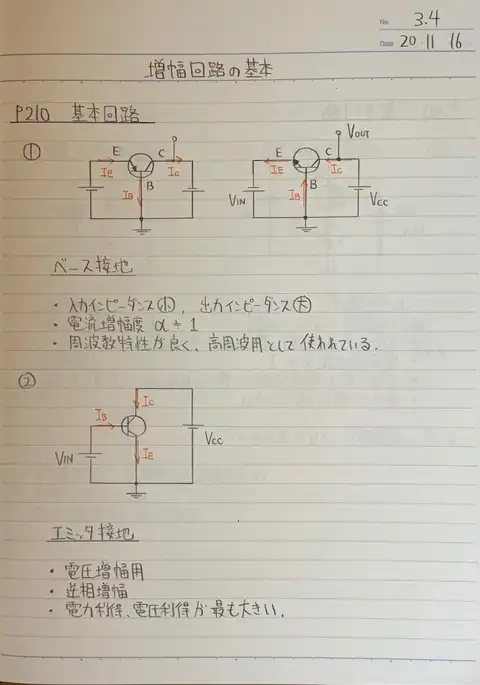 No. 3.4
Date 20・11・16
増幅回路の基本
P210 基本回路
①
E C
IE IC
IB B
E C VOUT
IE IC
IB B
VIN VCC
ベース接地
・入力インピーダンス小, 出力インピーダンス大
・電流増幅度 α≒1
・周波数特性が良く、高周波用として使われている.
②
IC
IB
VCC
VIN IE
エミッタ接地
・電圧増幅用
・逆相増幅
・電力利得、電圧利得が最も大きい.